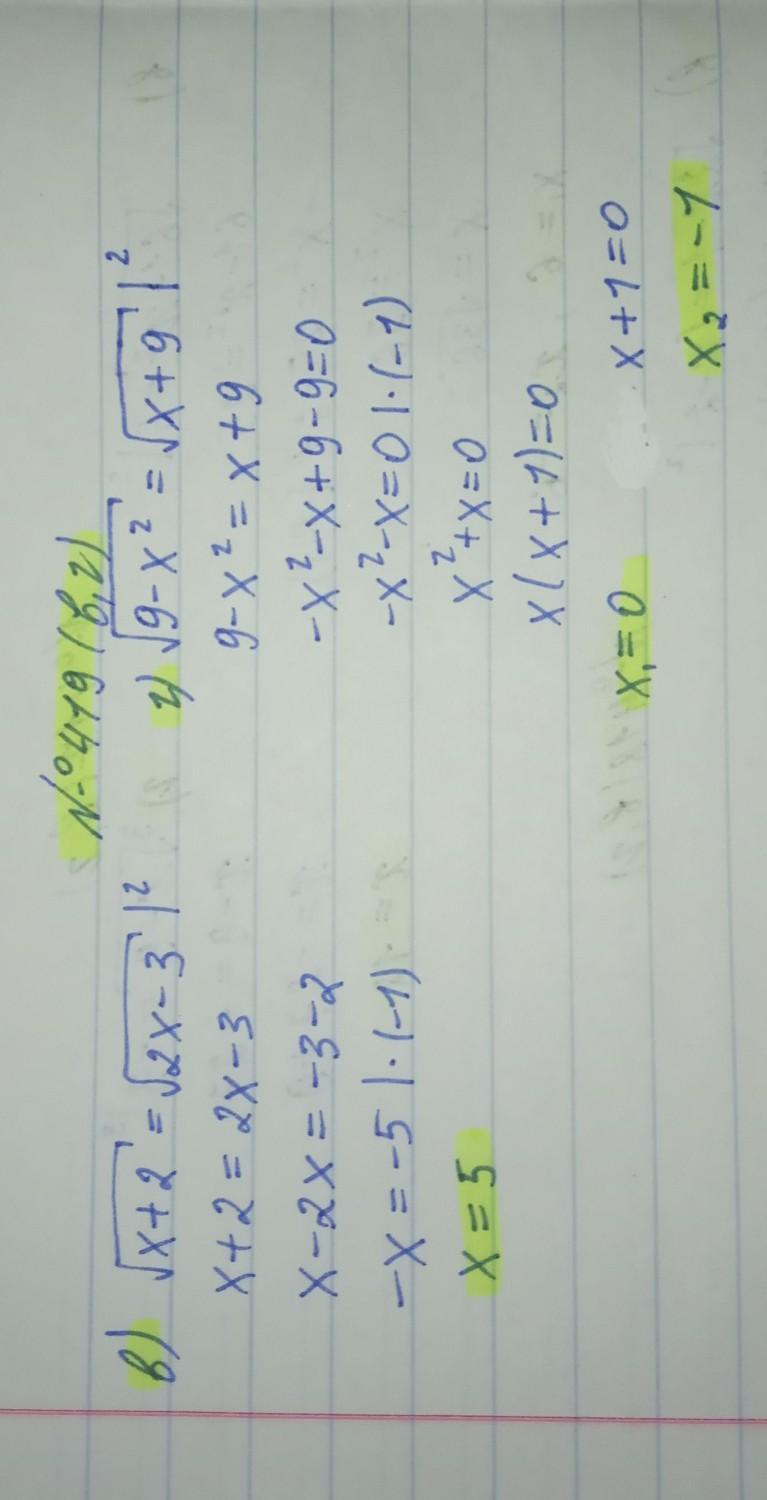 №419 (в,г)
в) √x+2 = √2x-3 |²
x+2 = 2x-3
x-2x = -3-2
-x = -5 |·(-1)
x = 5
г) √9-x² = √x+9 |²
9-x² = x+9
-x²-x+9-9=0
-x²-x=0 |·(-1)
x²+x=0
x(x+1)=0
x₁=0 x+1=0
x₂=-1